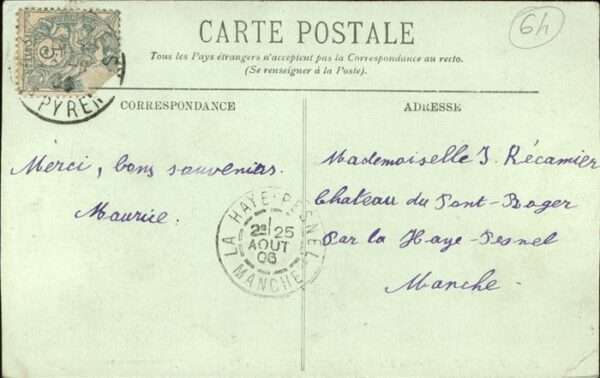 64
CARTE POSTALE
Tous les Pays étrangers n'acceptent pas la Correspondance au recto.
(Se renseigner à la Poste).
PYREN
CORRESPONDANCE
Merci, bons souvenirs.
Maurice.
LA HAYE-PESNEL
2e/25
AOUT
06
MANCHE
ADRESSE
Mademoiselle J. Récamier
Chateau du Pont-Roger
Par la Haye-Pesnel
Manche